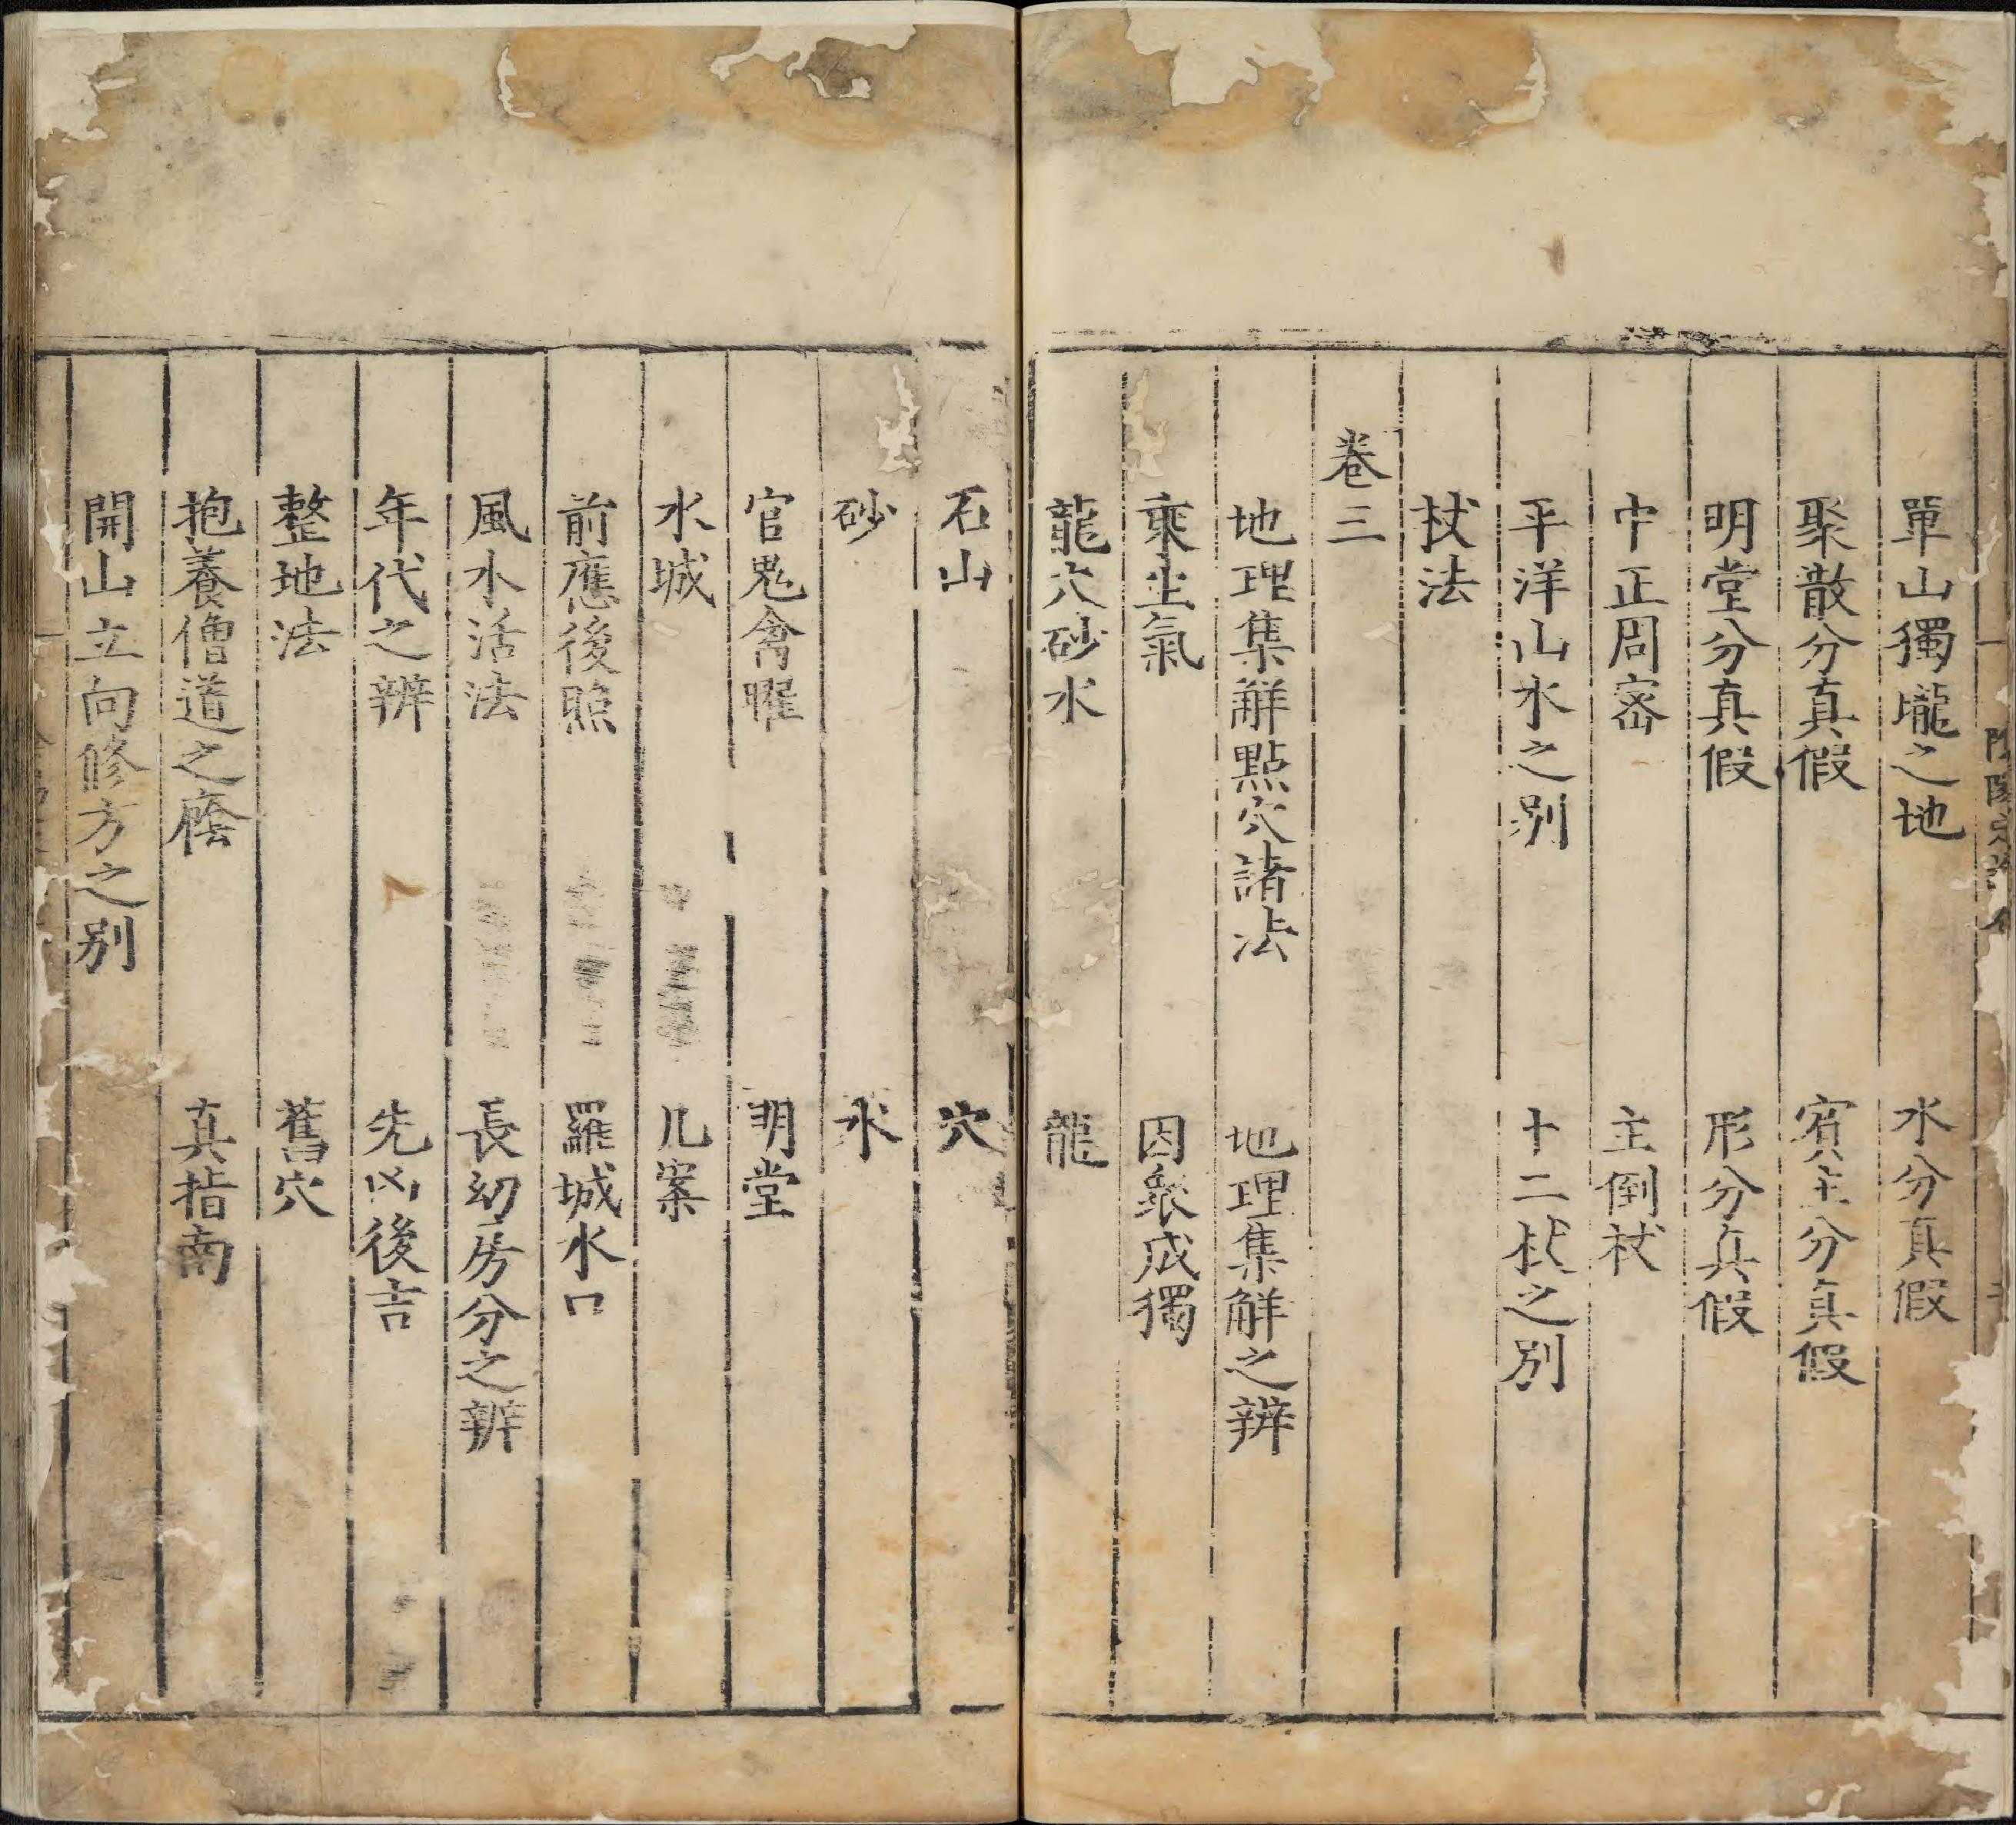 單山獨壠之地　水分真假
聚散分真假　賔主分真假
明堂分真假　形分真假
中正周宻　主倒杖
平洋山水之别　十二杖之別
杖法
卷三
地理集觧㸃穴諸法　地理集觧之辨
乘生氣　因衆成獨
龍穴砂水　龍
石山　穴
砂　水
官鬼禽曜　明堂
水城　几案
前應後照　羅城水口
風水活法　長幼房分之辨
年代之辨　先凶後吉
整地法　舊穴
抱養僧道之廕　真指南
開山立向修方之别